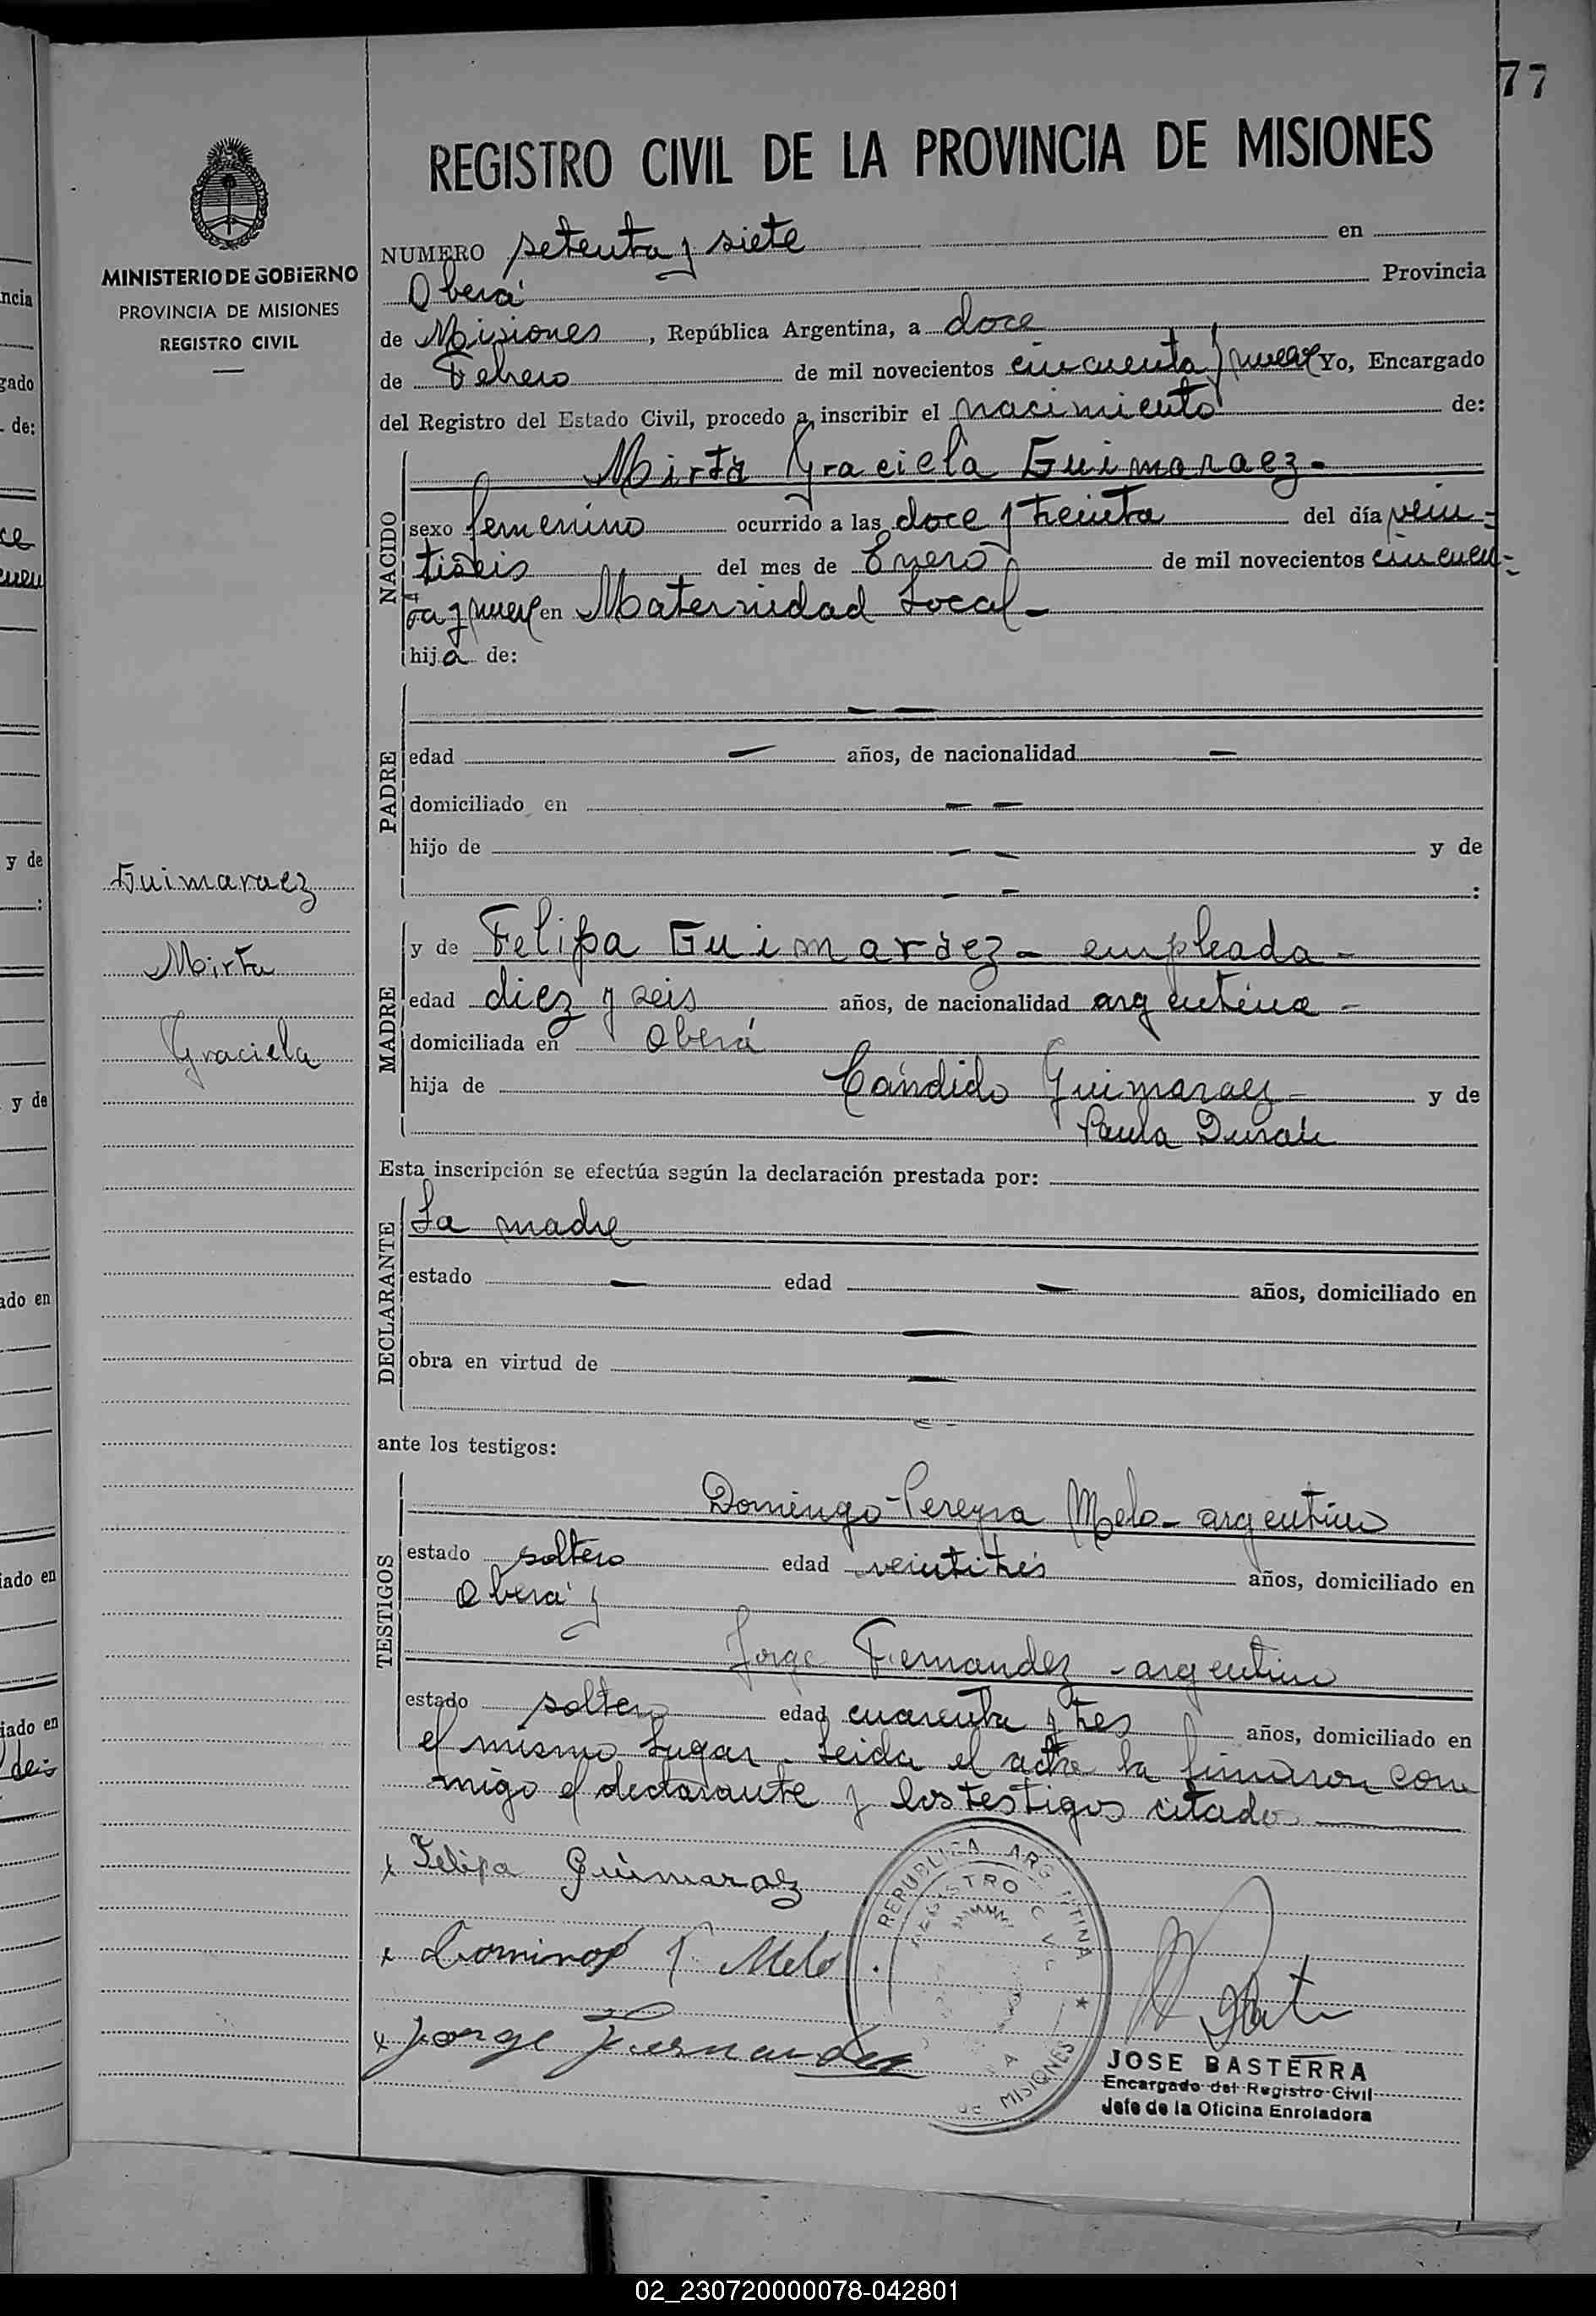 77
REGISTRO CIVIL DE LA PROVINCIA DE MISIONES
MINISTERIO DE GOBIERNO
PROVINCIA DE MISIONES
REGISTRO CIVIL
NUMERO setenta y siete en
Oberá Provincia
de Misiones, República Argentina, a doce
de Febrero de mil novecientos cincuenta y nueve Yo, Encargado
del Registro del Estado Civil, procedo a inscribir el nacimiento de:
NACIDO
Mirta Graciela Guimaraez-
sexo femenino ocurrido a las doce y treinta del día vein=
tiseis del mes de Enero de mil novecientos cincuen=
ta y nueve en Maternidad Local-
hija de:
PADRE
edad años, de nacionalidad
domiciliado en
hijo de y de
:
Guimaraez
Mirta
Graciela
MADRE
y de Felipa Guimaraez- empleada-
edad diez y seis años, de nacionalidad argentina-
domiciliada en Oberá
hija de Cándido Guimaraez- y de
Paula Durán
Esta inscripción se efectúa según la declaración prestada por:
DECLARANTE
La madre
estado edad años, domiciliado en
obra en virtud de
ante los testigos:
TESTIGOS
Domingo Pereyra Melo- argentino
estado soltero edad veintitrés años, domiciliado en
Oberá y
Jorge Fernandez - argentino
estado soltero edad cuarenta y tres años, domiciliado en
el mismo lugar. Leida el acta la firmaron con
migo el declarante y los testigos citados
x Felipa Guimaraez
x Domingo P. Melo
x Jorge Fernandez
REPUBLICA ARGENTINA
REGISTRO CIVIL
MISIONES
JOSE BASTERRA
Encargado del Registro Civil
Jefe de la Oficina Enroladora
02_230720000078-042801